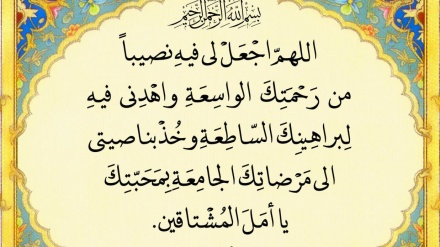 بِسْمِ اللهِ الرَّحْمٰنِ الرَّحِيمِ
اللهمّ اجْعَلْ لی فیهِ نصیباً
من رَحْمَتِكَ الواسِعَةِ واهْدِنی فیهِ
لِبراهِینِكَ السّاطِعَةِ وخُذْ بناصیتی
الی مَرْضاتِكَ الجامِعَةِ بِمَحَبّتِكَ
یا أمَلَ المُشْتاقین.